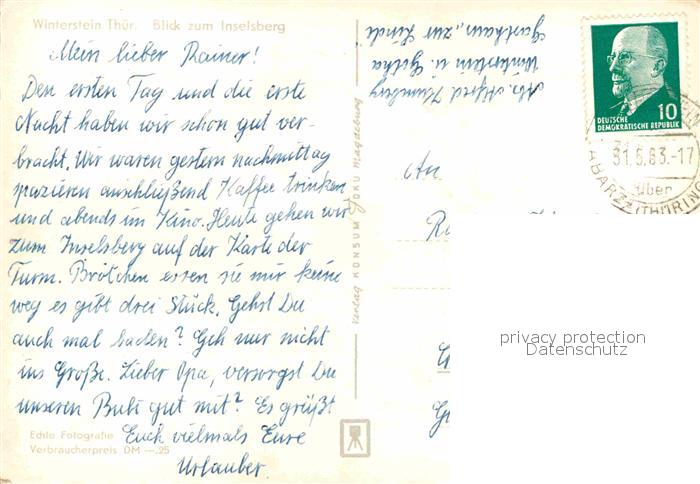 Winterstein Thür. Blick zum Inselsberg
Mein lieber Rainer!
Den ersten Tag und die erste
Nacht haben wir schon gut ver-
bracht. Wir waren gestern nachmittag
spazieren anschließend Kaffee trinken
und abends im Kino. Heute gehen wir
zum Inselsberg auf der Karte der
Turm. Brötchen essen sie mir keine
weg es gibt drei Stück. Gehst Du
auch mal baden? Geh nur nicht
ins Große. Lieber Opa, versorgst Du
unseren Bubi gut mit? Es grüßt
Euch vielmals Eure
Urlauber.
Echte Fotografie
Verbraucherpreis DM —.25
Verlag KONSUM FOKU Magdeburg
Abs. Alfred
Winterstein ü. Gotha
Gasthaus „zur Linde"
An
DEUTSCHE
DEMOKRATISCHE REPUBLIK
10
31.5.63.-17
über
(THÜRING
privacy protection
Datenschutz